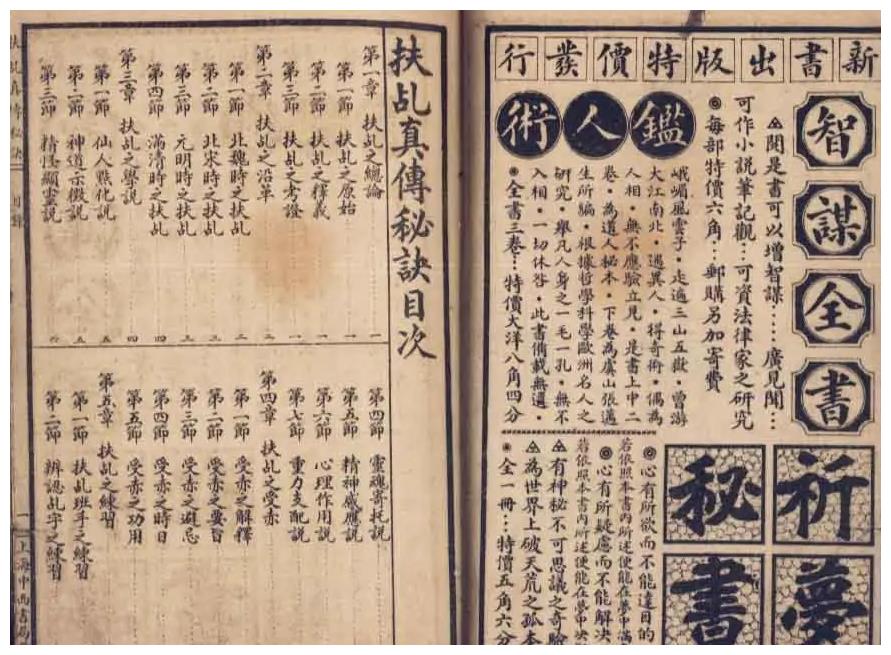 新書出版特價發行
智謀全書
▲閱是書可以增智謀……廣見聞…
可作小說筆記觀…可資法律家之研究
◉每部特價六角…郵購另加寄費
鑑人術
峨嵋風雲子·走遍三山五嶽·曾游
大江南北·遇異人·得奇術·偶為
人相·無不應驗立見·是書上中二
卷·為道人秘本·下卷為虞山張邁
生所騙·根據哲學科學歐洲名人之
研究·舉凡人身之一毛一孔·無不
入相·一切休咎·此書備載無遺·
◉全書三卷…特價大洋八角四分
祈夢
秘書
◎心有所欲而不能達目的
若依照本書內所述便能在夢中滿
◎心有所疑慮而不能解決
若依照本書內所述便能在夢中決
▲有神秘不可思議之奇驗
▲為世界上破天荒之孤本
◉全一冊…特價五角六分
扶乩真傳秘訣目次
第一章 扶乩之總論 一
第一節 扶乩之原始 一
第二節 扶乩之釋義 一
第三節 扶乩之考證 一
第二章 扶乩之沿革 二
第一節 北魏時之扶乩 二
第二節 北宋時之扶乩 三
第三節 元明時之扶乩 三
第四節 滿清時之扶乩 四
第三章 扶乩之學說 四
第一節 仙人點化說 五
第二節 神道示微說 五
第三節 精怪顯靈說 六
第四節 靈魂寄托說
第五節 精神感應說
第六節 心理作用說
第七節 重力支配說
第四章 扶乩之受赤
第一節 受赤之解釋
第二節 受赤之要旨
第三節 受赤之避忌
第四節 受赤之時日
第五節 受赤之功用
第五章 扶乩之練習
第一節 扶乩班手之練習
第二節 辨認乩字之練習
扶乩真傳秘訣 目錄 一 上海中西書局